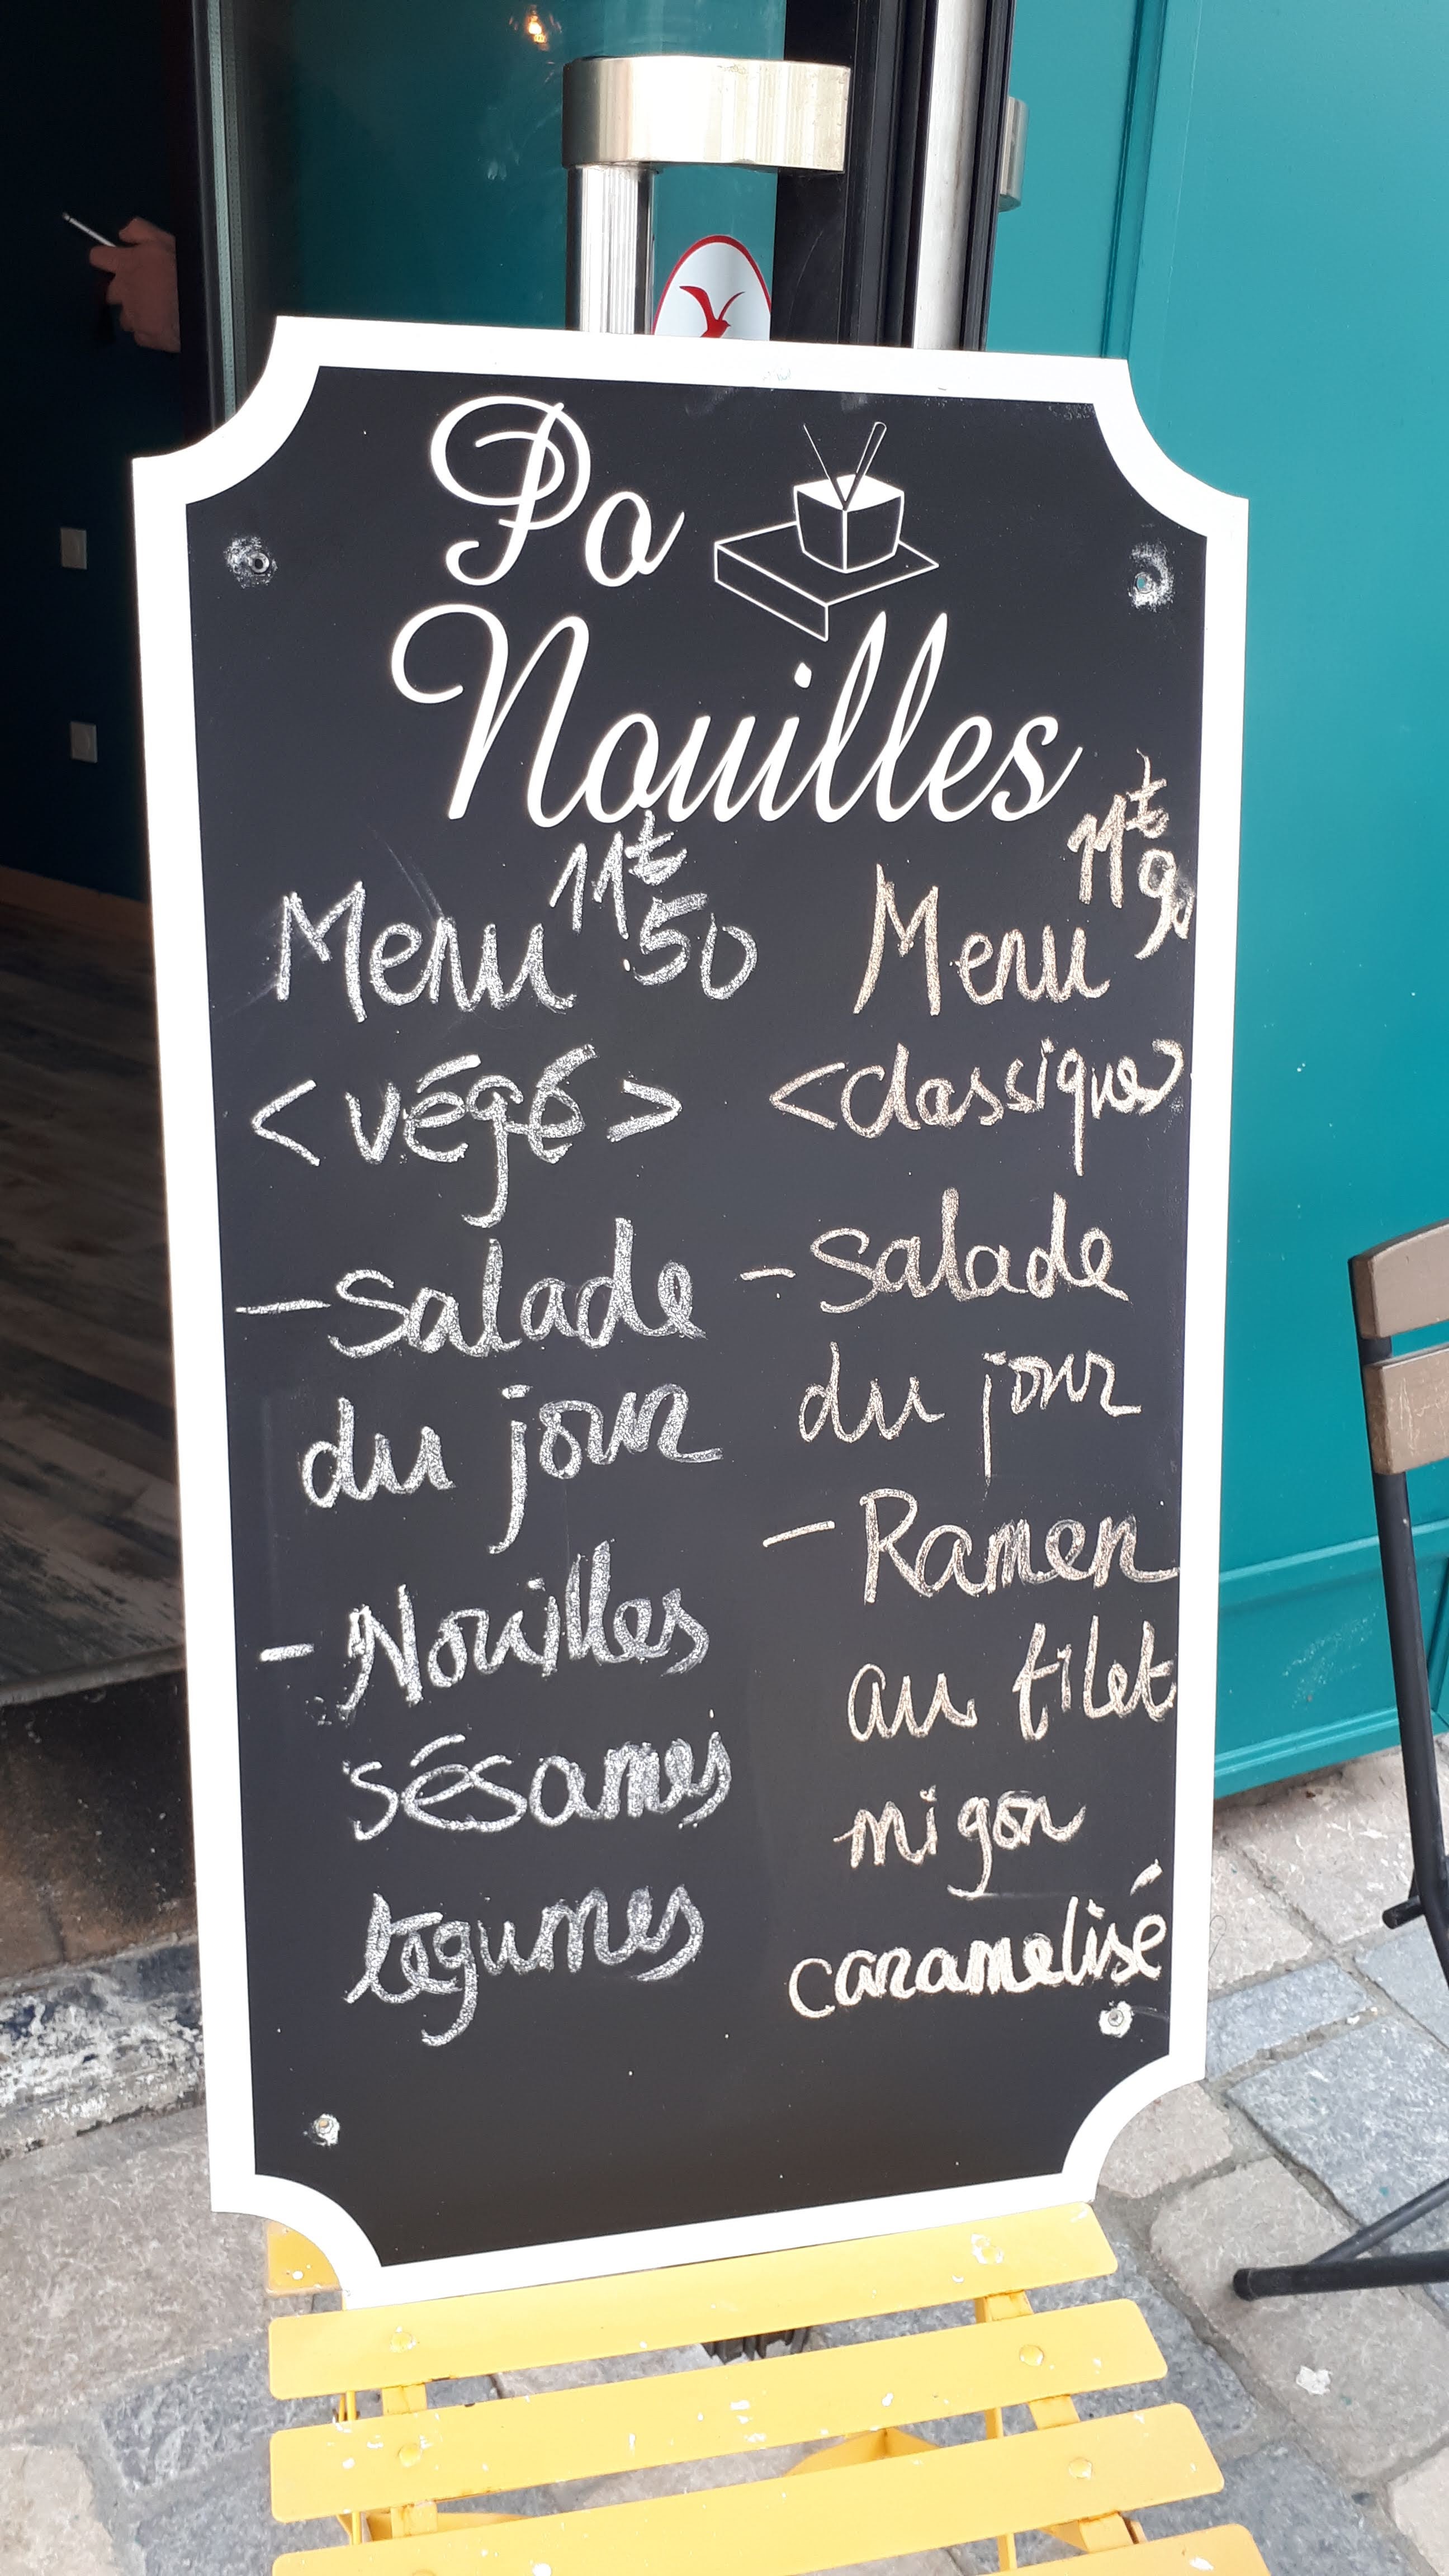 Po
Nouilles
Menu 11€50
<végé>
-Salade
du jour
-Nouilles
sésames
légumes
Menu 11€90
<classique>
-Salade
du jour
-Ramen
au filet
migon
caramelisé